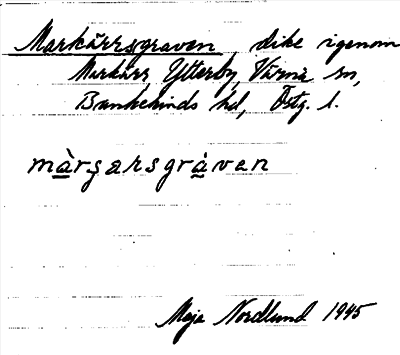 Markärrsgraven, dike igenom
Markärr Ytterby, Värna sn,
Bankekinds hd, Östg. l.
màrşarsgràven
Maja Nordlund 1945